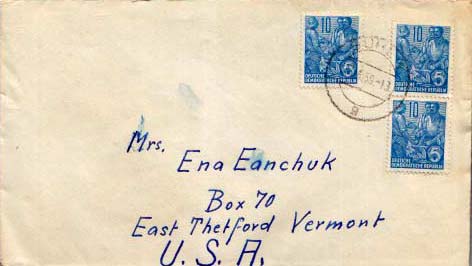 10
DEUTSCHE
DEMOKRATISCHE REPUBLIK
10
DEUTSCHE
DEMOKRATISCHE REPUBLIK
10
DEUTSCHE
DEMOKRATISCHE REPUBLIK
Mrs.
Ena Eanchuk
Box 70
East Thetford Vermont
U. S. A.